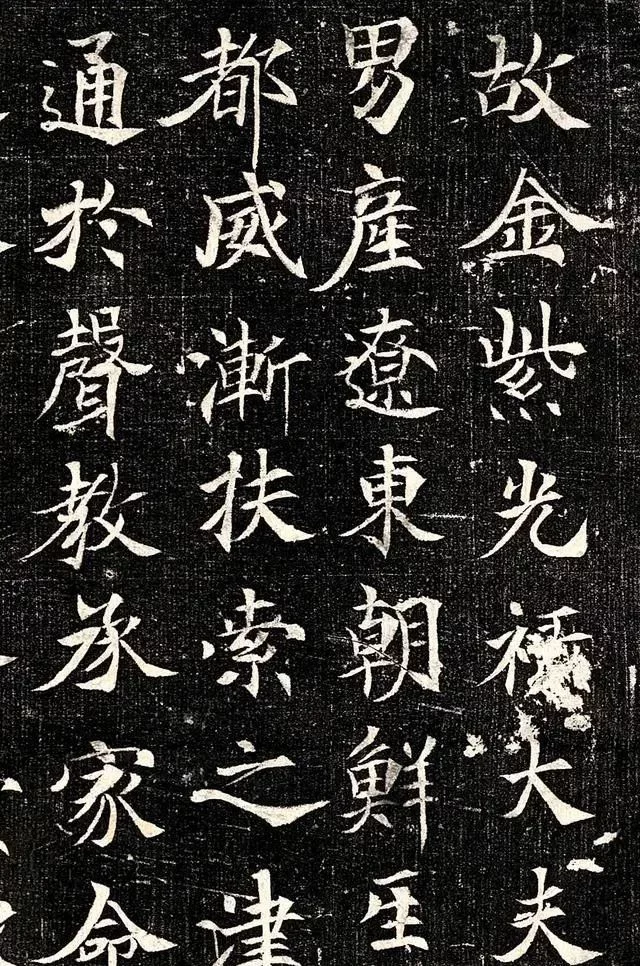 故金紫光祿大夫
男產遼東朝鮮𤯔
都威漸扶索之津
通於聲教承家命